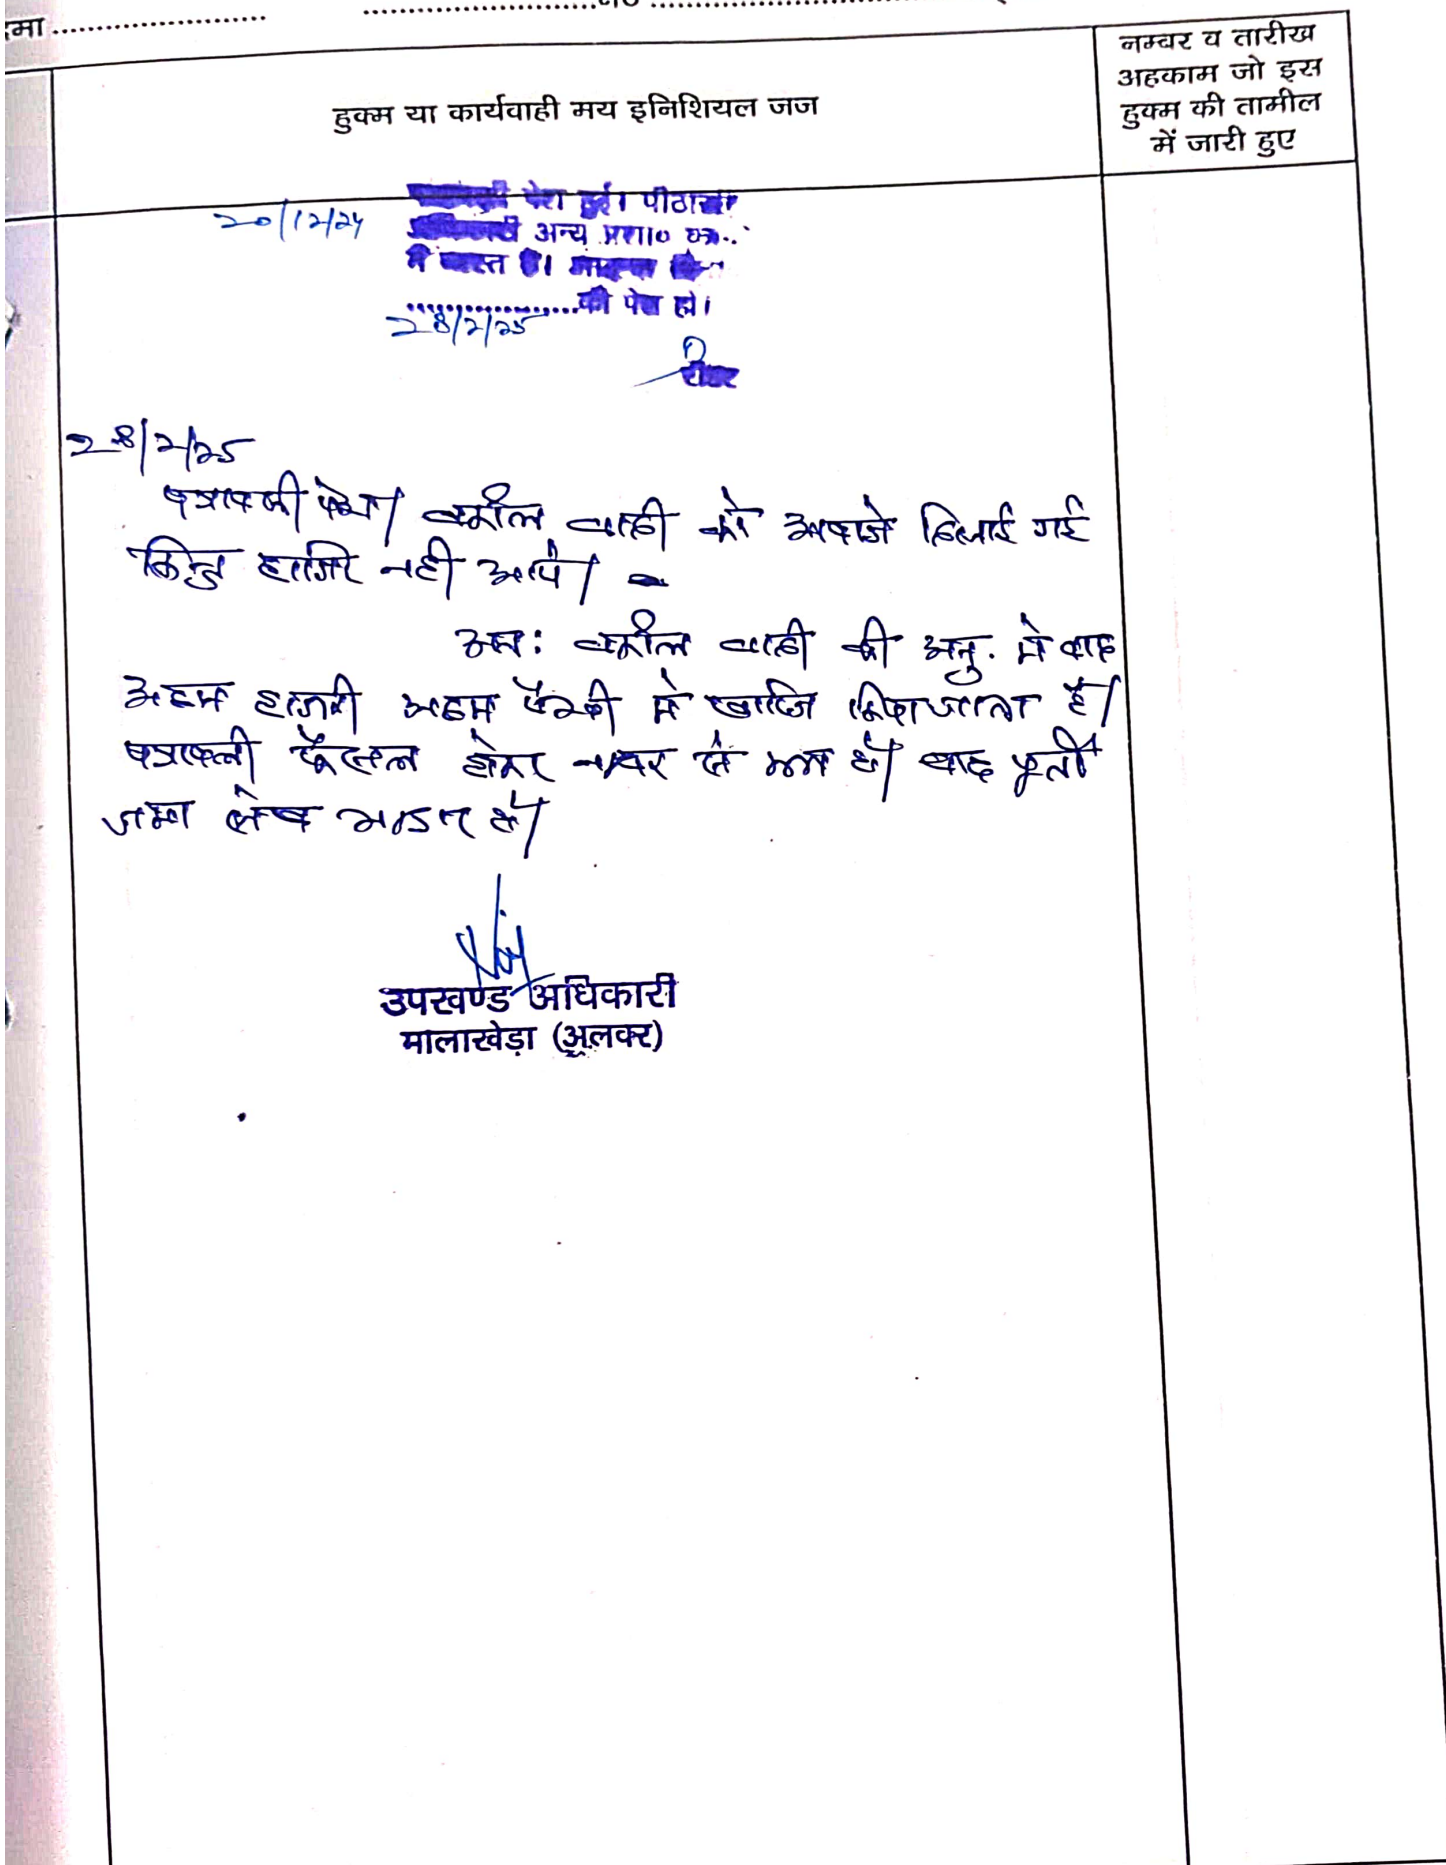 हुक्म या कार्यवाही मय इनिशियल जज
नम्बर व तारीख
अहकाम जो इस
हुक्म की तामील
में जारी हुए
20/12/24
पेश हुई। पीठासीन
अन्य प्रशा०
में व्यस्त है।
को पेश हो।
28/2/25
रीडर
28/2/25
पत्रावली पेश। वकील वादी को आवाजे दिलाई गई
किन्तु हाजिर नही आये।
अतः वकील वादी की अनु. मे वाद
अदम हाजरी अदम पैरवी मे खारिज किया जाता है।
पत्रावली फैसल होकर नम्बर से कम हो। बाद पूर्ती
जमा लेख भण्डार हो।
उपखण्ड अधिकारी
मालाखेड़ा (अलवर)